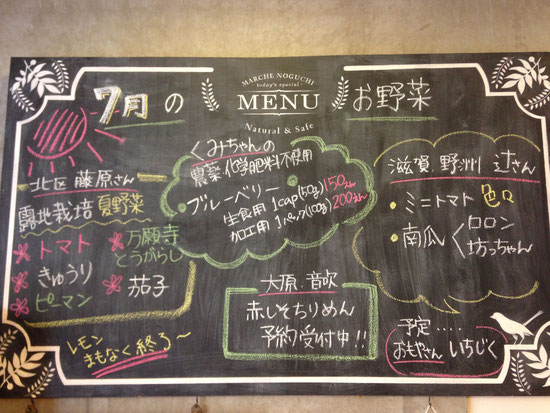 7月の
MARCHE NOGUCHI
today's special
MENU
Natural & Safe
お野菜
北区 藤原さん
露地栽培 夏野菜
トマト
きゅうり
ピーマン
万願寺
とうがらし
茄子
レモン
まもなく終了〜
くみちゃんの
農薬・化学肥料不使用
・ブルーベリー
生食用 1cap(50g) 150えん
加工用 1パック(100g) 200えん
大原 音吹
赤しそちりめん
予約受付中!!
滋賀 野洲 辻さん
・ミニトマト 色々
・南瓜 ロロン
坊っちゃん
予定....
おもやさん いちじく